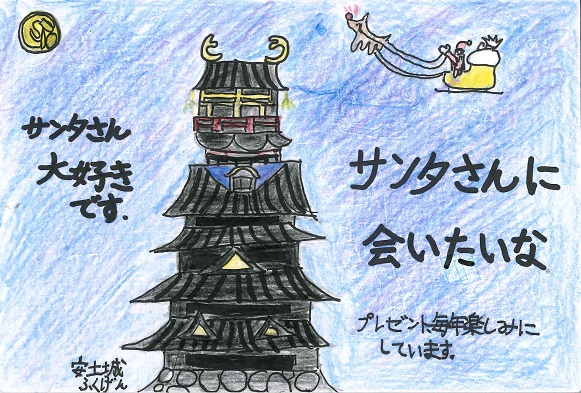 サンタさん
大好き
です.
サンタさんに
会いたいな
プレゼント毎年楽しみに
しています.
安土城
ふくげん